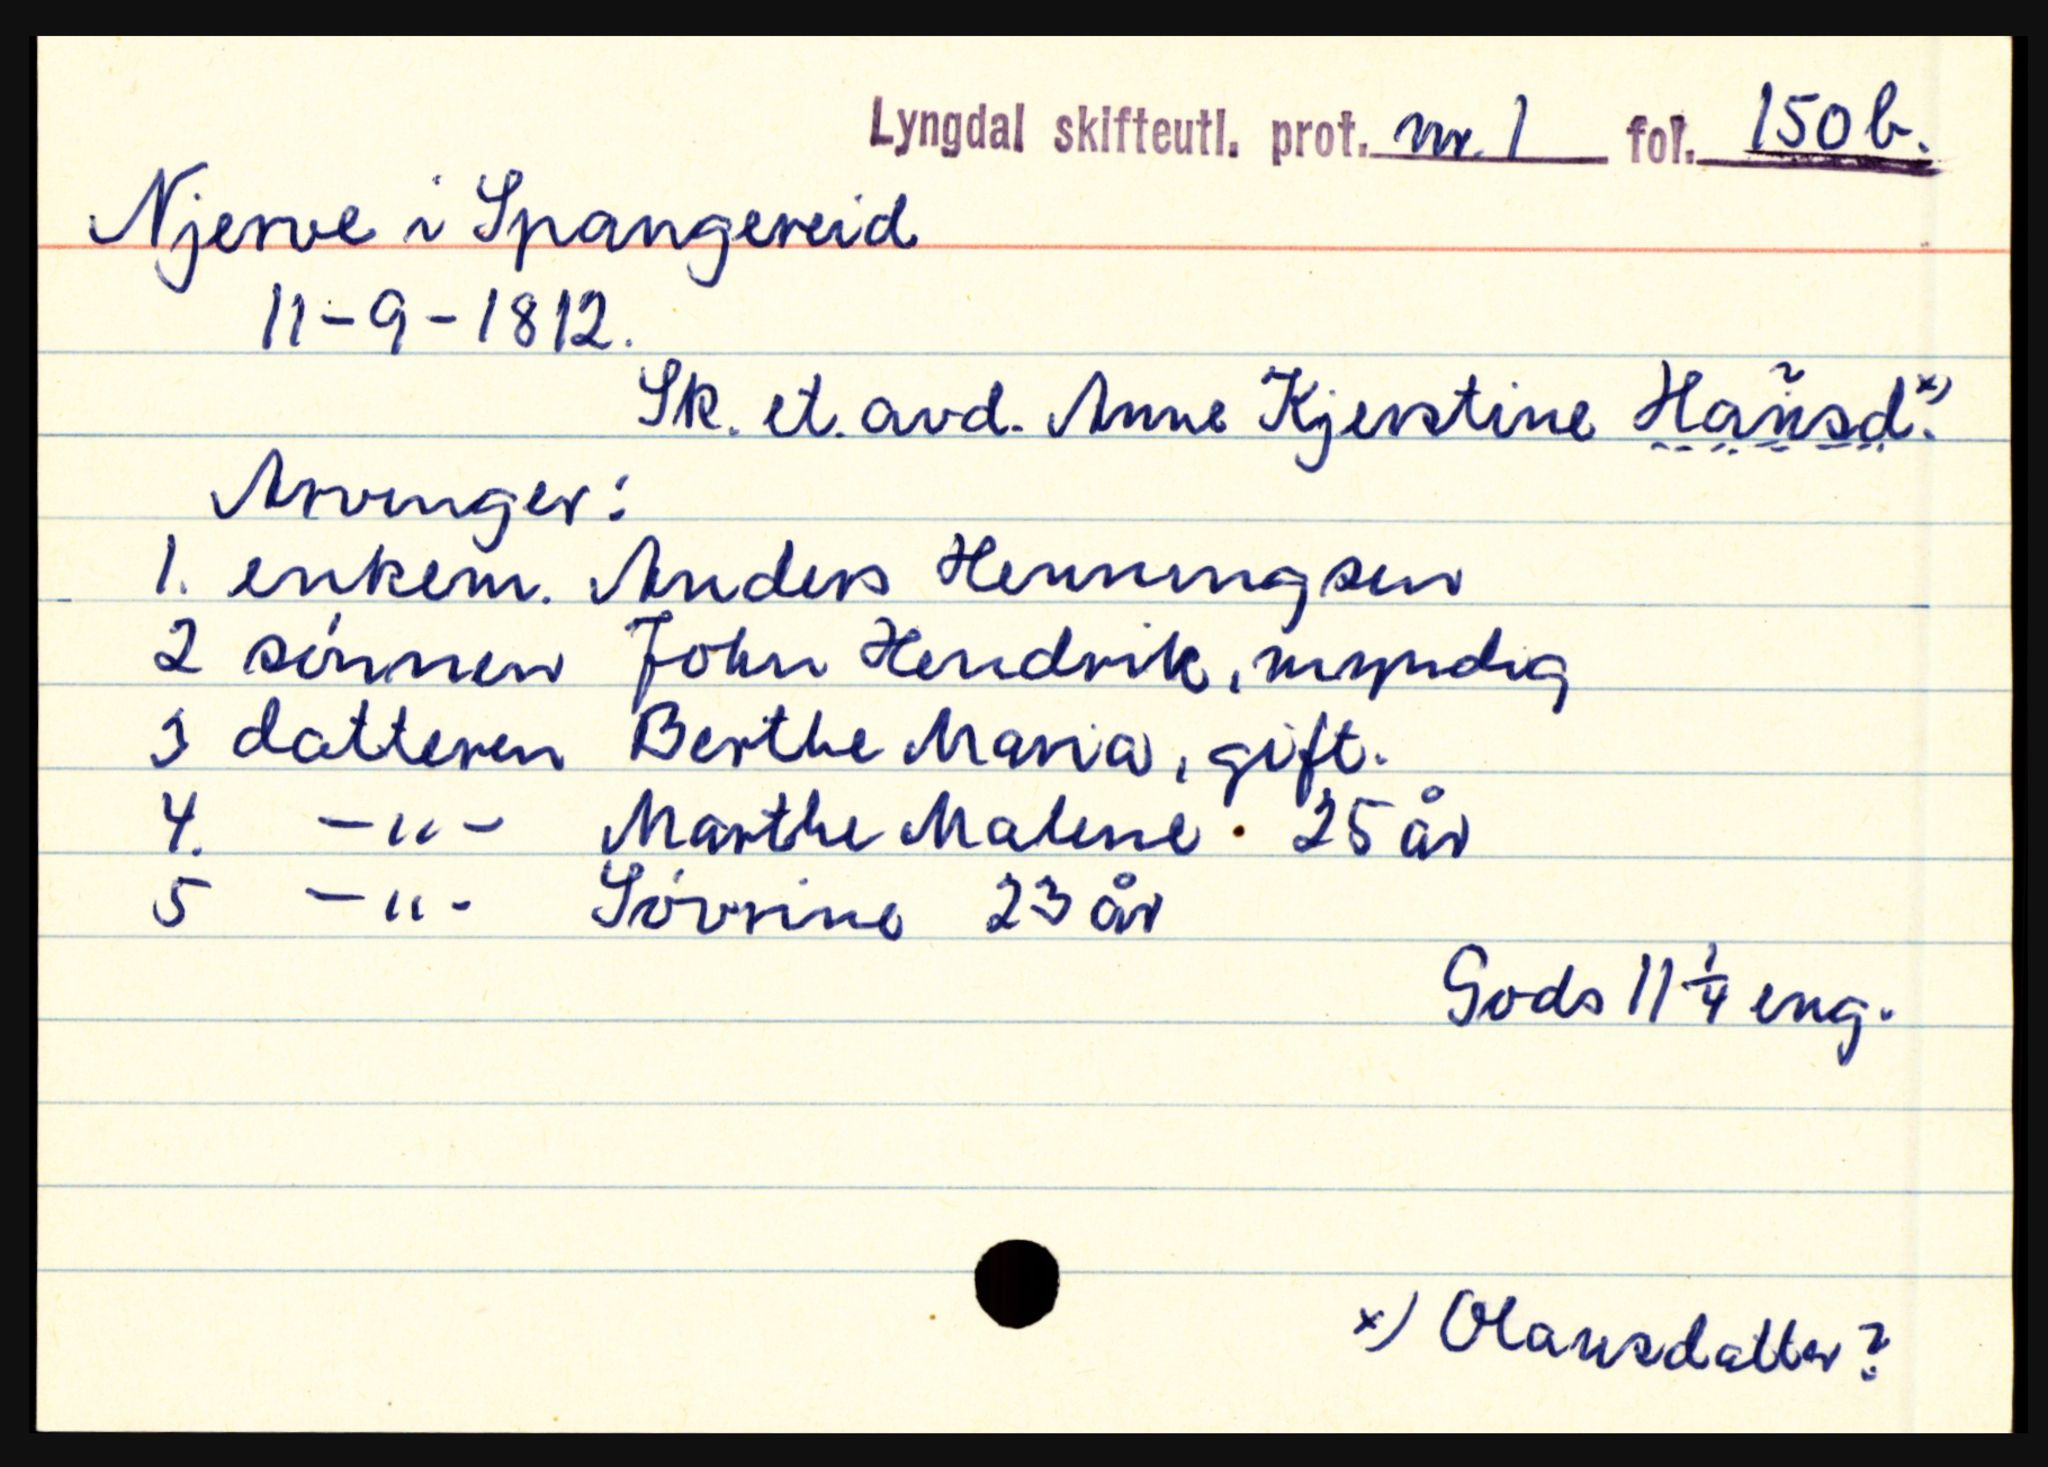 Lyngdal skifteutl. prot. nr. 1 fol. 150 b.
Njerve i Spangereid
11-9-1812.
Sk. et. avd. Anne Kjerstine Hansd. x)
Arvinger:
1. enkem. Anders Henningsen
2 sønnen John Hendrik, myndig
3 datteren Berthe Maria, gift.
4. -"- Marthe Malene. 25 år
5 -"- Sørine 23 år
Gods 11 1/4 eng.
x) Olausdatter?